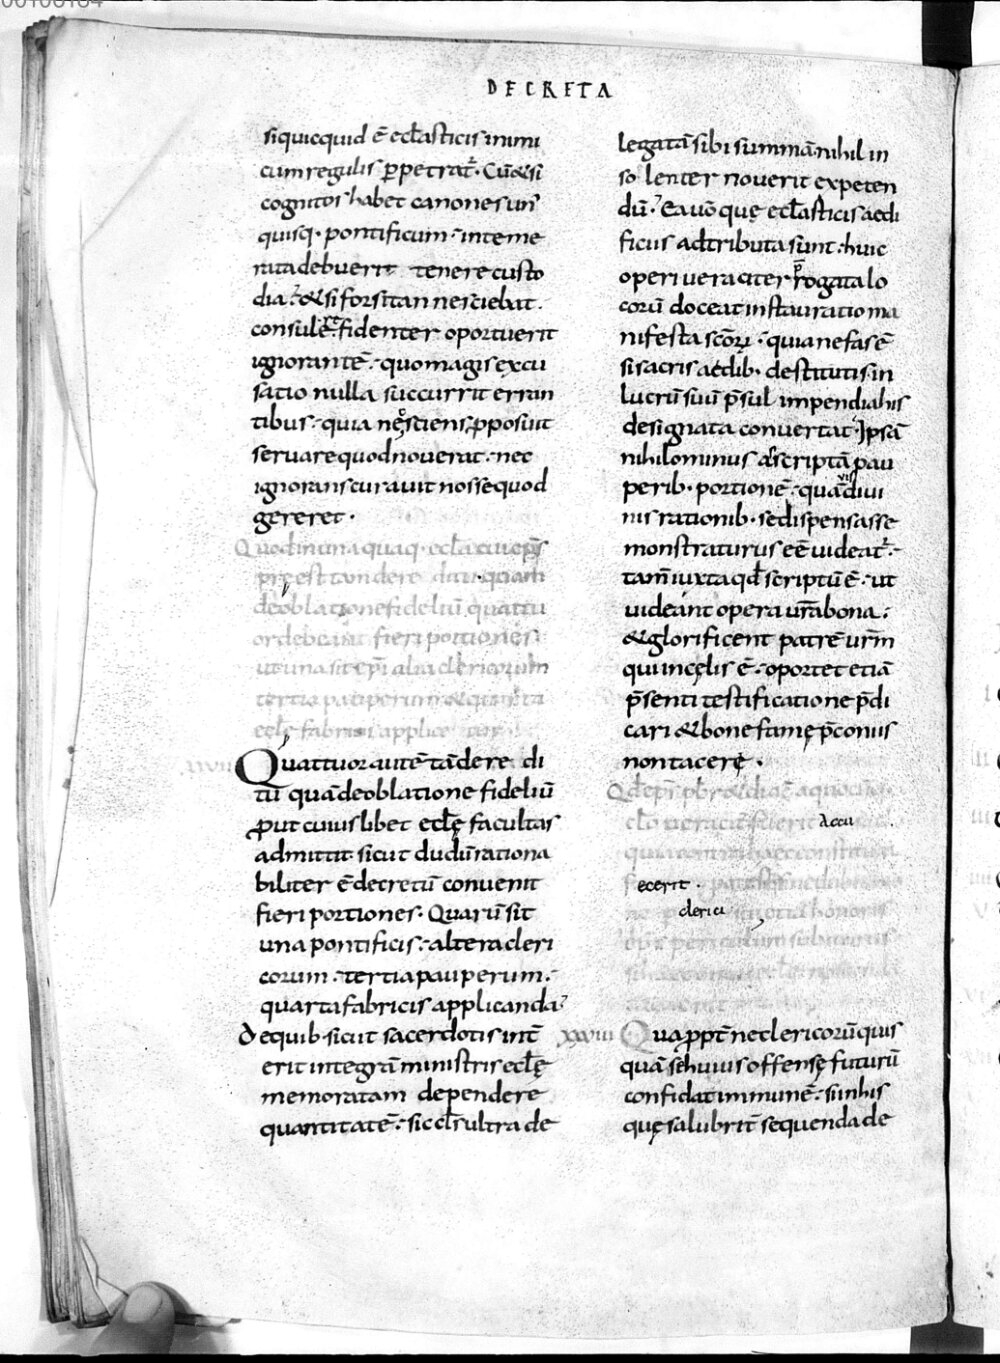 DECRETA
si quicquid ē ecl̄asticis inimi
cum regulis ꝑpetrat̄. Cū & si
cognitos habet canones un
quisq. pontificum. inteme
rata debuerit tenere custo
dia. & si forsitan nesciebat.
consulē. fidenter oportuerit
ignorantē. quo magis excu
satio nulla succurrit erran
tibus. quia nec sciens ꝓposuit
servare quod noverat. nec
ignorans curavit nosse quod
gereret.
Quod in una quaq. ecl̄a cui ep̄s
preest tam dere ditu quam
de oblatione fideliū quattu
or debeant fieri portiones
ut una sit ep̄i alia clericorum
tertia pauperum & quarta
ecl̄ę fabricis applicetur
Quattuor autē tā de redi
tu quā de oblatione fideliū
ꝓut cuiuslibet ecl̄ę facultas
admittit. sicut dudū rationa
biliter ē decretū convenit
fieri portiones. Quarū sit
una pontificis. altera cleri
corum. tertia pauperum.
quarta fabricis applicanda.
de quib. sicut sacerdotis int̄
erit integrā ministris ecl̄ę
memoratam dependere
quantitatē. sic cl̄s ultra de
legatā sibi summā nihil in
solenter noverit expeten
dū. Ea v̄o quę ecl̄asticis aedi
ficiis adtributa sunt. huic
operi veraciter p̄rogata lo
corū doceat instauratio ma
nifesta sc̄orꝝ. quia nefas ē
si sacris aedib. destitutis in
lucrū suū p̄sul impendia his
designata convertat. Ipsā
nihilominus adscriptā pau
perib. portionē. quāvis divi
nis rationib. se dispensasse
monstraturus eē videat̄.
tam̄ iuxta qd̄ scriptū ē. ut
videant opera vr̄a bona.
& glorificent patrē vr̄m
qui in cęlis ē. oportet etiā
p̄senti testificatione p̄di
cari & bone famę p̄coniis
non tacerę.
Qd̄ ep̄s pb̄r & diac̄
accu
ecerit.
clerici
xxviii Quapropt̄ ne clericorū quis
quā se huius offensę futurū
confidat immunē. si in his
quę salubrit̄ sequenda de